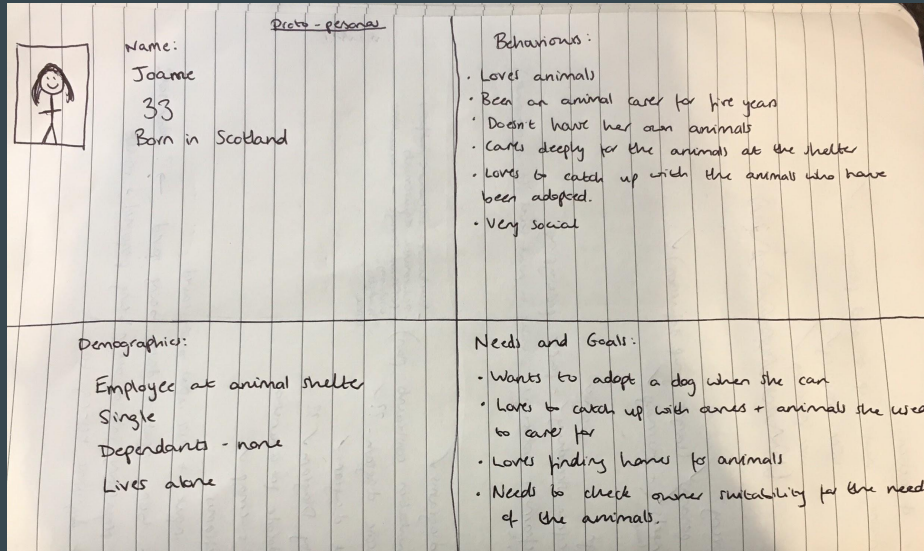 Proto-pesona
Name:
Joanne
33
Born in Scotland
Behaviours:
· Loves animals
· Been an animal carer for five years
· Doesn't have her own animals
· Cares deeply for the animals at the shelter
· Loves to catch up with the animals who have
been adopted.
· Very social
Demographics:
Employee at animal shelter
Single
Dependants - none
Lives alone
Needs and Goals:
· Wants to adopt a dog when she can
· Loves to catch up with owners + animals she used
to care for
· Loves finding homes for animals
· Needs to check owner suitability for the need
of the animals.